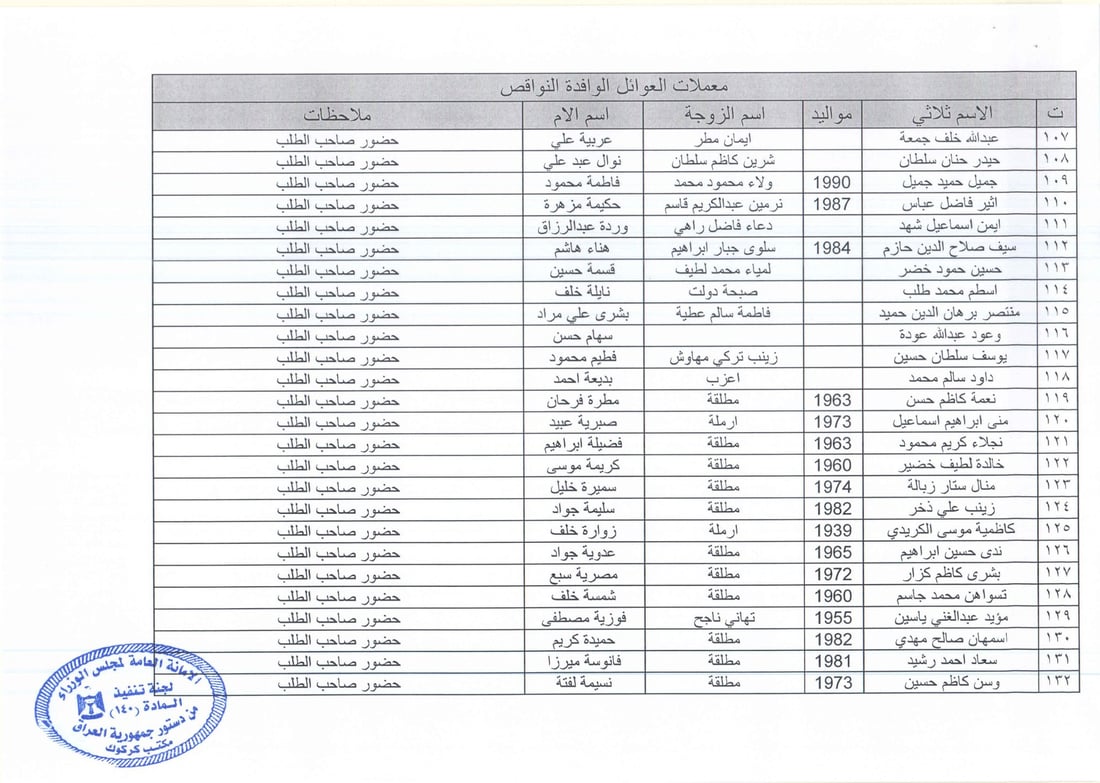 معملات العوائل الوافدة النواقص
ت الاسم ثلاثي مواليد اسم الزوجة اسم الام ملاحظات
١٠٧ عبدالله خلف جمعة ايمان مطر عربية علي حضور صاحب الطلب
١٠٨ حيدر حنان سلطان شرين كاظم سلطان نوال عبد علي حضور صاحب الطلب
١٠٩ جميل حميد جميل 1990 ولاء محمود محمد فاطمة محمود حضور صاحب الطلب
١١٠ اثير فاضل عباس 1987 نرمين عبدالكريم قاسم حكيمة مزهرة حضور صاحب الطلب
١١١ ايمن اسماعيل شهد دعاء فاضل راهي وردة عبدالرزاق حضور صاحب الطلب
١١٢ سيف صلاح الدين حازم 1984 سلوى جبار ابراهيم هناء هاشم حضور صاحب الطلب
١١٣ حسين حمود خضر لمياء محمد لطيف قسمة حسين حضور صاحب الطلب
١١٤ اسطم محمد طلب صبحة دولت نايلة خلف حضور صاحب الطلب
١١٥ منتصر برهان الدين حميد فاطمة سالم عطية بشرى علي مراد حضور صاحب الطلب
١١٦ وعود عبدالله عودة سهام حسن حضور صاحب الطلب
١١٧ يوسف سلطان حسين زينب تركي مهاوش فطيم محمود حضور صاحب الطلب
١١٨ داود سالم محمد اعزب بديعة احمد حضور صاحب الطلب
١١٩ نعمة كاظم حسن 1963 مطلقة مطرة فرحان حضور صاحب الطلب
١٢٠ منى ابراهيم اسماعيل 1973 ارملة صبرية عبيد حضور صاحب الطلب
١٢١ نجلاء كريم محمود 1963 مطلقة فضيلة ابراهيم حضور صاحب الطلب
١٢٢ خالدة لطيف خضير 1960 مطلقة كريمة موسى حضور صاحب الطلب
١٢٣ منال ستار زبالة 1974 مطلقة سميرة خليل حضور صاحب الطلب
١٢٤ زينب علي ذخر 1982 مطلقة سليمة جواد حضور صاحب الطلب
١٢٥ كاظمية موسى الكريدي 1939 ارملة زوارة خلف حضور صاحب الطلب
١٢٦ ندى حسين ابراهيم 1965 مطلقة عدوية جواد حضور صاحب الطلب
١٢٧ بشرى كاظم كزار 1972 مطلقة مصرية سبع حضور صاحب الطلب
١٢٨ تسواهن محمد جاسم 1960 مطلقة شمسة خلف حضور صاحب الطلب
١٢٩ مؤيد عبدالغني ياسين 1955 تهاني ناجح فوزية مصطفى حضور صاحب الطلب
١٣٠ اسمهان صالح مهدي 1982 مطلقة حميدة كريم حضور صاحب الطلب
١٣١ سعاد احمد رشيد 1981 مطلقة فانوسة ميرزا حضور صاحب الطلب
١٣٢ وسن كاظم حسين 1973 مطلقة نسيمة لفتة حضور صاحب الطلب
الامانة العامة لمجلس الوزراء
لجنة تنفيذ
المادة (١٤٠)
من دستور جمهورية العراق
مكتب كركوك